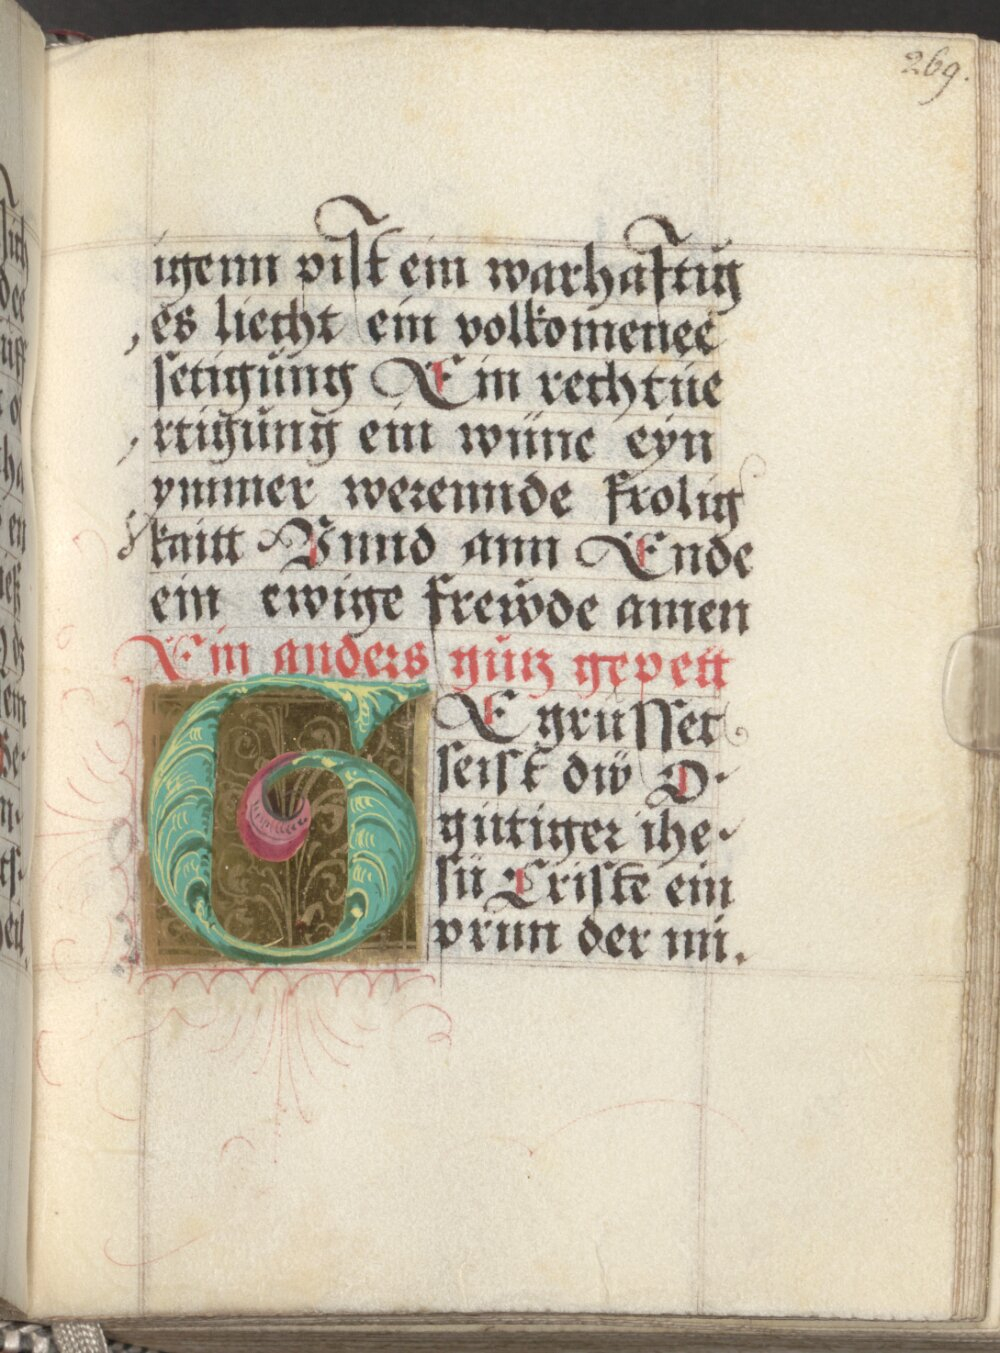 269.
igenn pist ein warhafftig
es liecht ein volkomenee
setigűng Ein rechtue
rtigűng ein wűne eyn
ymmer werennde frolig
kaitt Vnnd ann Ende
ein ewige frewde amen
Ein anders gűtz gepett
GEgrűsset
seist dw O
gűtiger ihe
sű Criste ein
prun der mi.